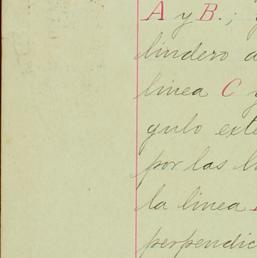 A y B.; y
lindero
linea C y
gulo exte
por las
la linea
perpendic